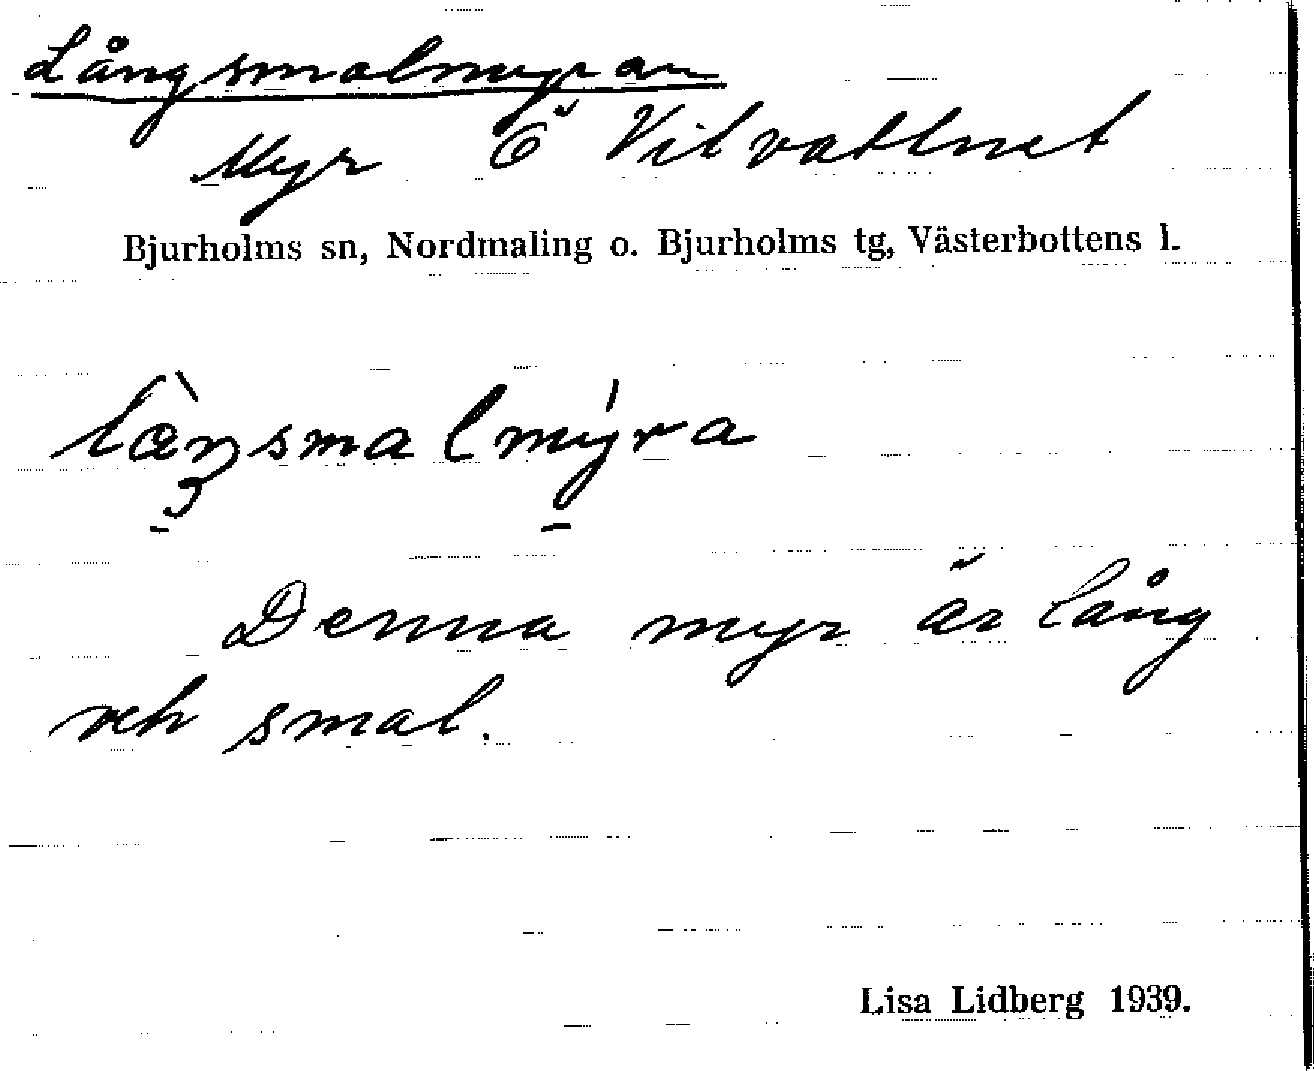 Långsmalmyran
Myr Ö Vitvattnet
Bjurholms sn, Nordmaling o. Bjurholms tg, Västerbottens l.
læ̀ŋsmalmýra
Denna myr är lång
och smal.
Lisa Lidberg 1939.